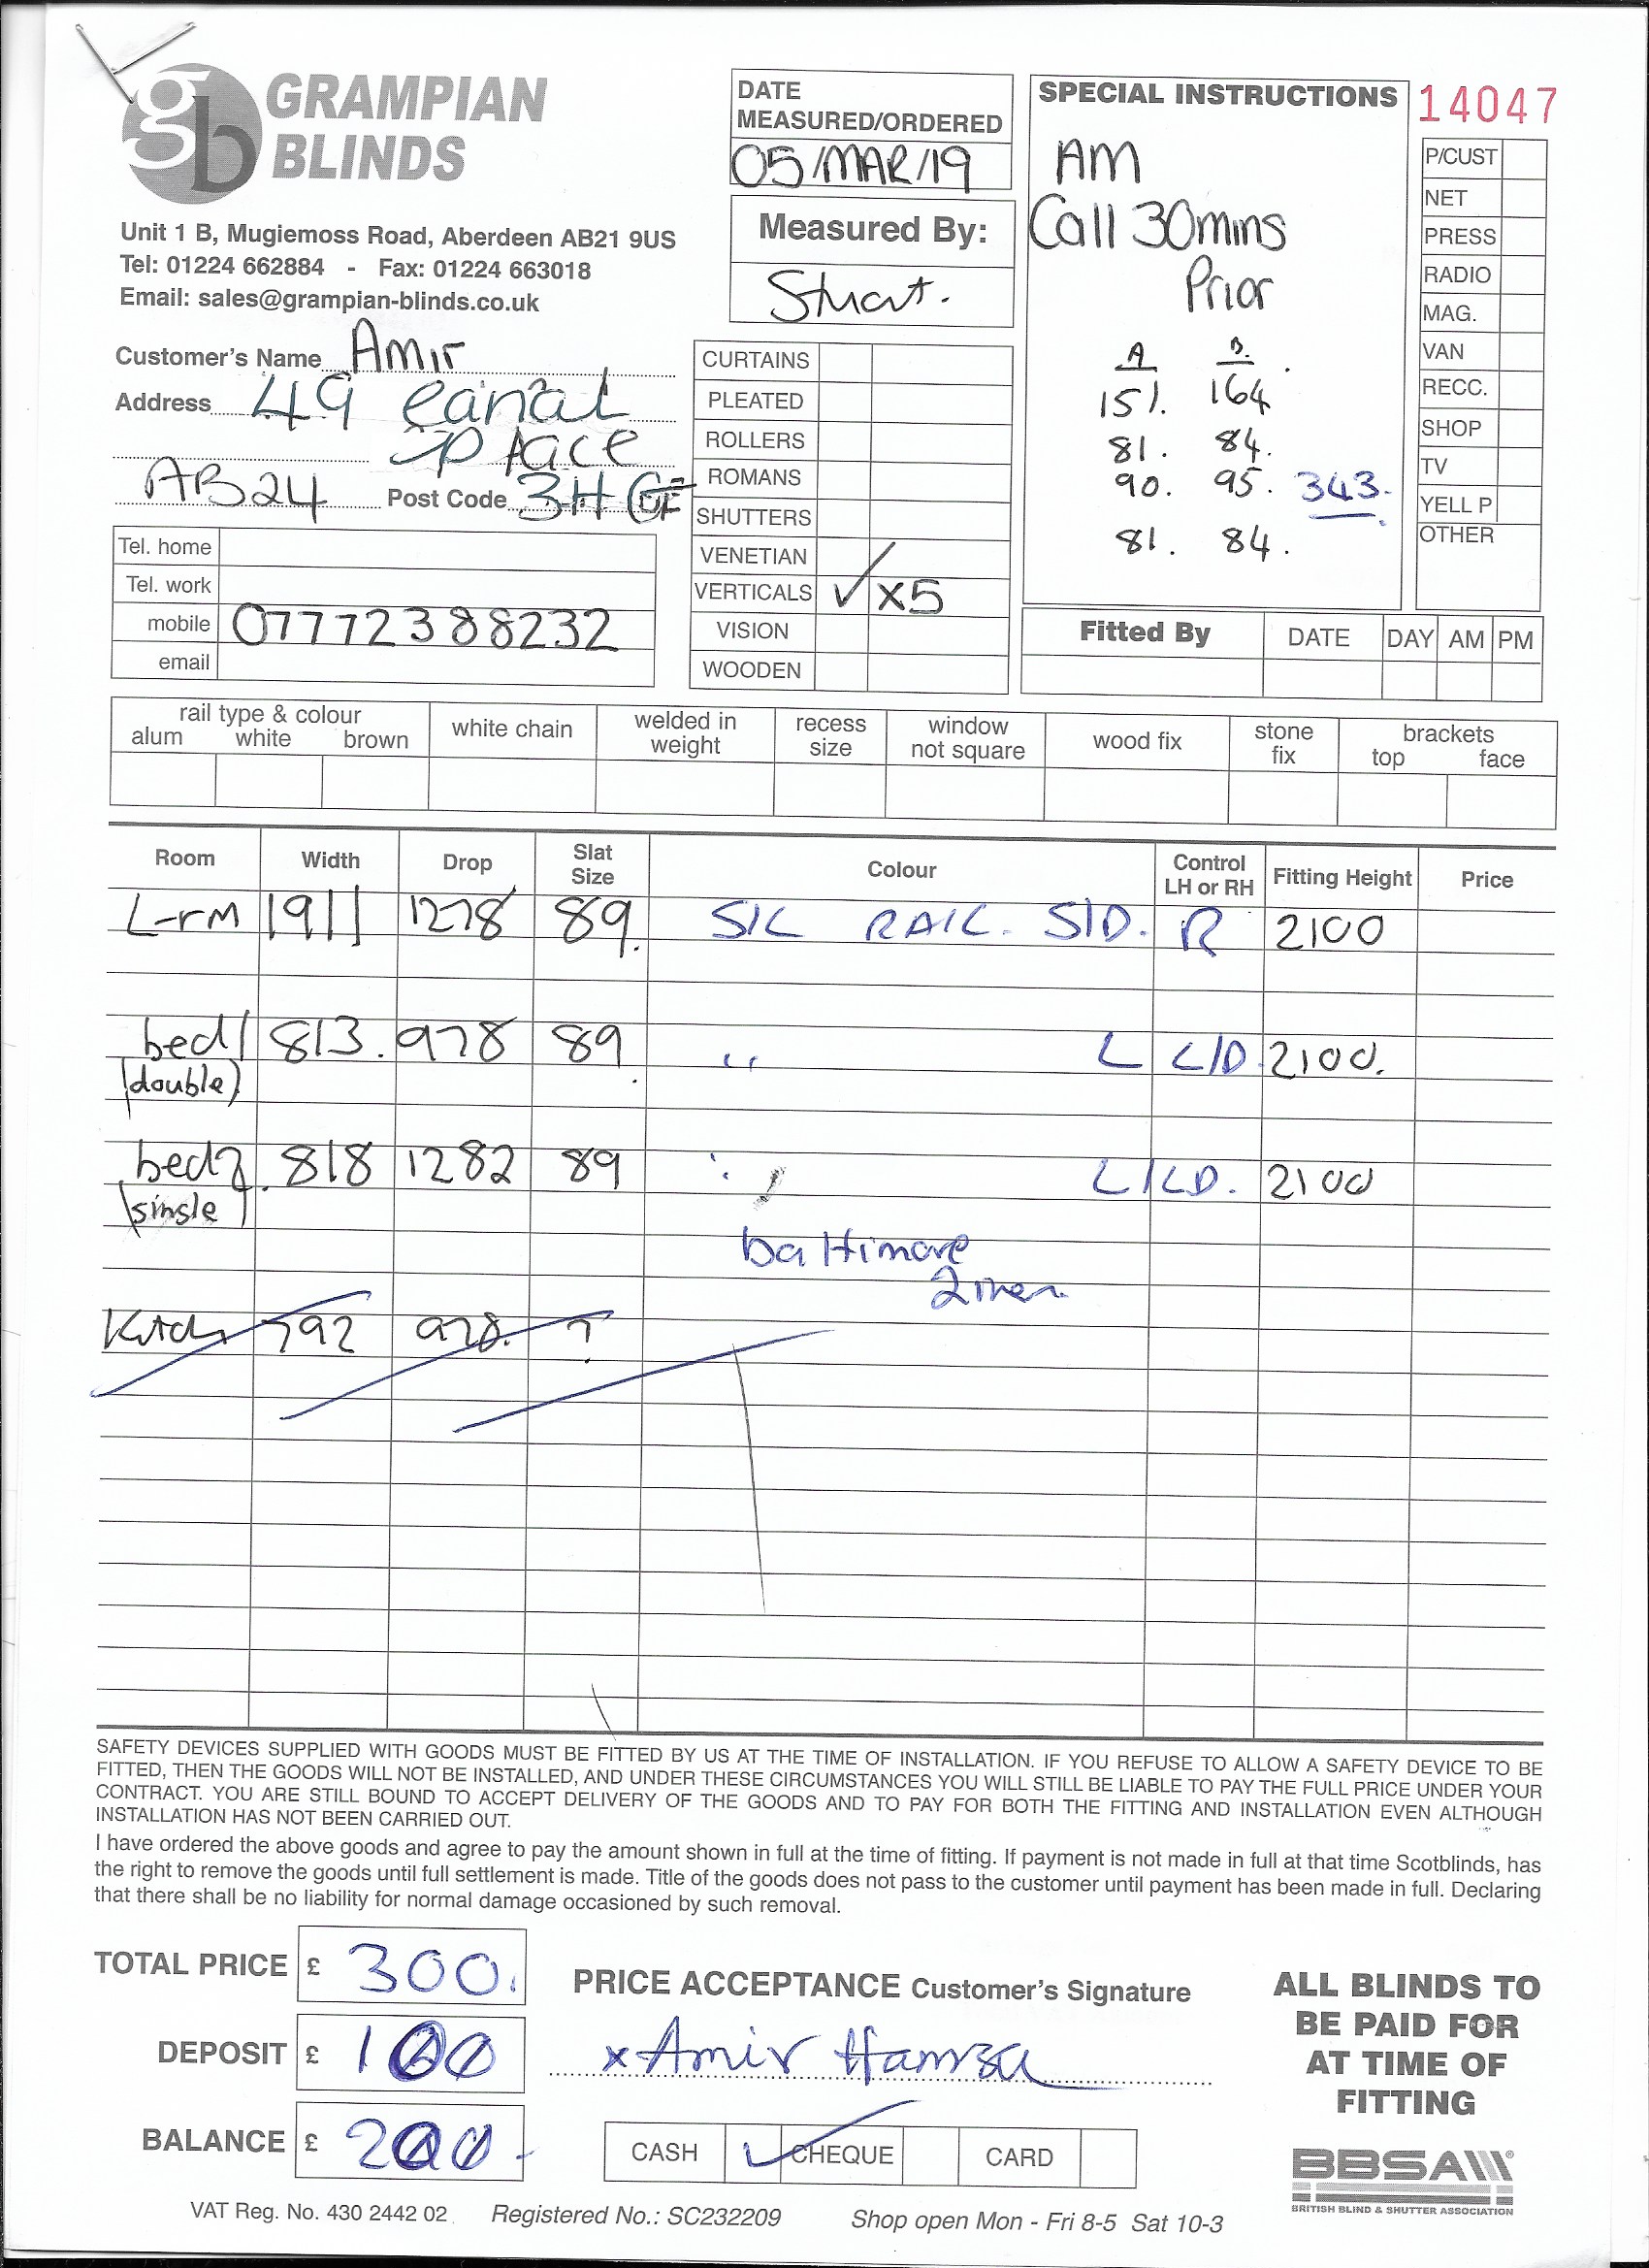 gb GRAMPIAN
BLINDS
Unit 1 B, Mugiemoss Road, Aberdeen AB21 9US
Tel: 01224 662884 - Fax: 01224 663018
Email: sales@grampian-blinds.co.uk
Customer's Name Amir
Address 49 canal
place
AB24 Post Code 3H
Tel. home
Tel. work
mobile 07772388232
email
DATE
MEASURED/ORDERED
05/MAR/19
Measured By:
Stuart.
CURTAINS
PLEATED
ROLLERS
ROMANS
SHUTTERS
VENETIAN
VERTICALS ✓ x5
VISION
WOODEN
SPECIAL INSTRUCTIONS
AM
Call 30mins
Prior
A B.
151. 164
81. 84.
90. 95. 343.
81. 84.
14047
P/CUST
NET
PRESS
RADIO
MAG.
VAN
RECC.
SHOP
TV
YELL P
OTHER
Fitted By DATE DAY AM PM
rail type & colour
alum white brown
white chain
welded in
weight
recess
size
window
not square
wood fix
stone
fix
brackets
top face
Room Width Drop Slat Size Colour Control LH or RH Fitting Height Price
L-rm 1911 1278 89. S/L RAIL. S/D. R 2100
bed1 813. 978 89. " L L/D. 2100.
(double)
bed2 818 1282 89 " L/LD. 2100
(single)
baltimore
Kitch 792 978. ?
SAFETY DEVICES SUPPLIED WITH GOODS MUST BE FITTED BY US AT THE TIME OF INSTALLATION. IF YOU REFUSE TO ALLOW A SAFETY DEVICE TO BE
FITTED, THEN THE GOODS WILL NOT BE INSTALLED, AND UNDER THESE CIRCUMSTANCES YOU WILL STILL BE LIABLE TO PAY THE FULL PRICE UNDER YOUR
CONTRACT. YOU ARE STILL BOUND TO ACCEPT DELIVERY OF THE GOODS AND TO PAY FOR BOTH THE FITTING AND INSTALLATION EVEN ALTHOUGH
INSTALLATION HAS NOT BEEN CARRIED OUT.
I have ordered the above goods and agree to pay the amount shown in full at the time of fitting. If payment is not made in full at that time Scotblinds, has
the right to remove the goods until full settlement is made. Title of the goods does not pass to the customer until payment has been made in full. Declaring
that there shall be no liability for normal damage occasioned by such removal.
TOTAL PRICE £ 300.
DEPOSIT £ 100
BALANCE £ 200.
PRICE ACCEPTANCE Customer's Signature
x Amir Hamza
CASH ✓ CHEQUE CARD
ALL BLINDS TO
BE PAID FOR
AT TIME OF
FITTING
BBSA
BRITISH BLIND & SHUTTER ASSOCIATION
VAT Reg. No. 430 2442 02 Registered No.: SC232209 Shop open Mon - Fri 8-5 Sat 10-3